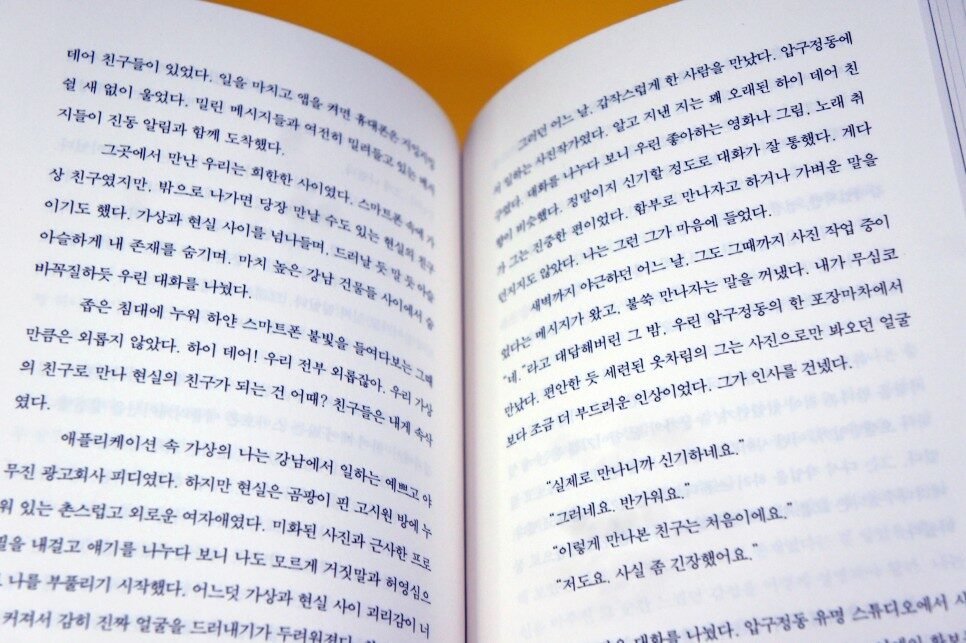 데어 친구들이 있었다. 일을 마치고 앱을 켜면 휴대폰은
쉴 새 없이 울었다. 밀린 메시지들과 여전히 밀려들고 있는 메시
지들이 진동 알림과 함께 도착했다.
그곳에서 만난 우리는 희한한 사이였다. 스마트폰 속에 가
상 친구였지만, 밖으로 나가면 당장 만날 수도 있는 현실의 친구
이기도 했다. 가상과 현실 사이를 넘나들며, 드러날 듯 말 듯 아슬
아슬하게 내 존재를 숨기며, 마치 높은 강남 건물들 사이에서 숨
바꼭질하듯 우린 대화를 나눴다.
좁은 침대에 누워 하얀 스마트폰 불빛을 들여다보는 그때
만큼은 외롭지 않았다. 하이 데어! 우리 전부 외롭잖아. 우리 가상
의 친구로 만나 현실의 친구가 되는 건 어때? 친구들은 내게 속삭
였다.
애플리케이션 속 가상의 나는 강남에서 일하는 예쁘고 아
무진 광고회사 피디였다. 하지만 현실은 곰팡이 핀 고시원 방에 누
워 있는 촌스럽고 외로운 여자애였다. 미화된 사진과 근사한 프로
필을 내걸고 얘기를 나누다 보니 나도 모르게 거짓말과 허영심으
로 나를 부풀리기 시작했다. 어느덧 가상과 현실 사이 괴리감이 너
커져서 감히 진짜 얼굴을 드러내기가 두려워졌다.
그러던 어느 날, 갑작스럽게 한 사람을 만났다. 압구정동에
서 일하는 사진작가였다. 알고 지낸 지는 꽤 오래된 하이 데어 친
구였다. 대화를 나누다 보니 우린 좋아하는 영화나 그림, 노래 취
향이 비슷했다. 정말이지 신기할 정도로 대화가 잘 통했다. 게다
가 그는 진중한 편이었다. 함부로 만나자고 하거나 가벼운 말을
던지지도 않았다. 나는 그런 그가 마음에 들었다.
새벽까지 야근하던 어느 날, 그도 그때까지 사진 작업 중이
었다는 메시지가 왔고, 불쑥 만나자는 말을 꺼냈다. 내가 무심코
“네.”라고 대답해버린 그 밤, 우린 압구정동의 한 포장마차에서
만났다. 편안한 듯 세련된 옷차림의 그는 사진으로만 봐오던 얼굴
보다 조금 더 부드러운 인상이었다. 그가 인사를 건넸다.
“실제로 만나니까 신기하네요.”
“그러네요. 반가워요.”
“이렇게 만나본 친구는 처음이에요.”
“저도요. 사실 좀 긴장했어요.”
대화를 나눴다. 압구정동 유명 스튜디오에서